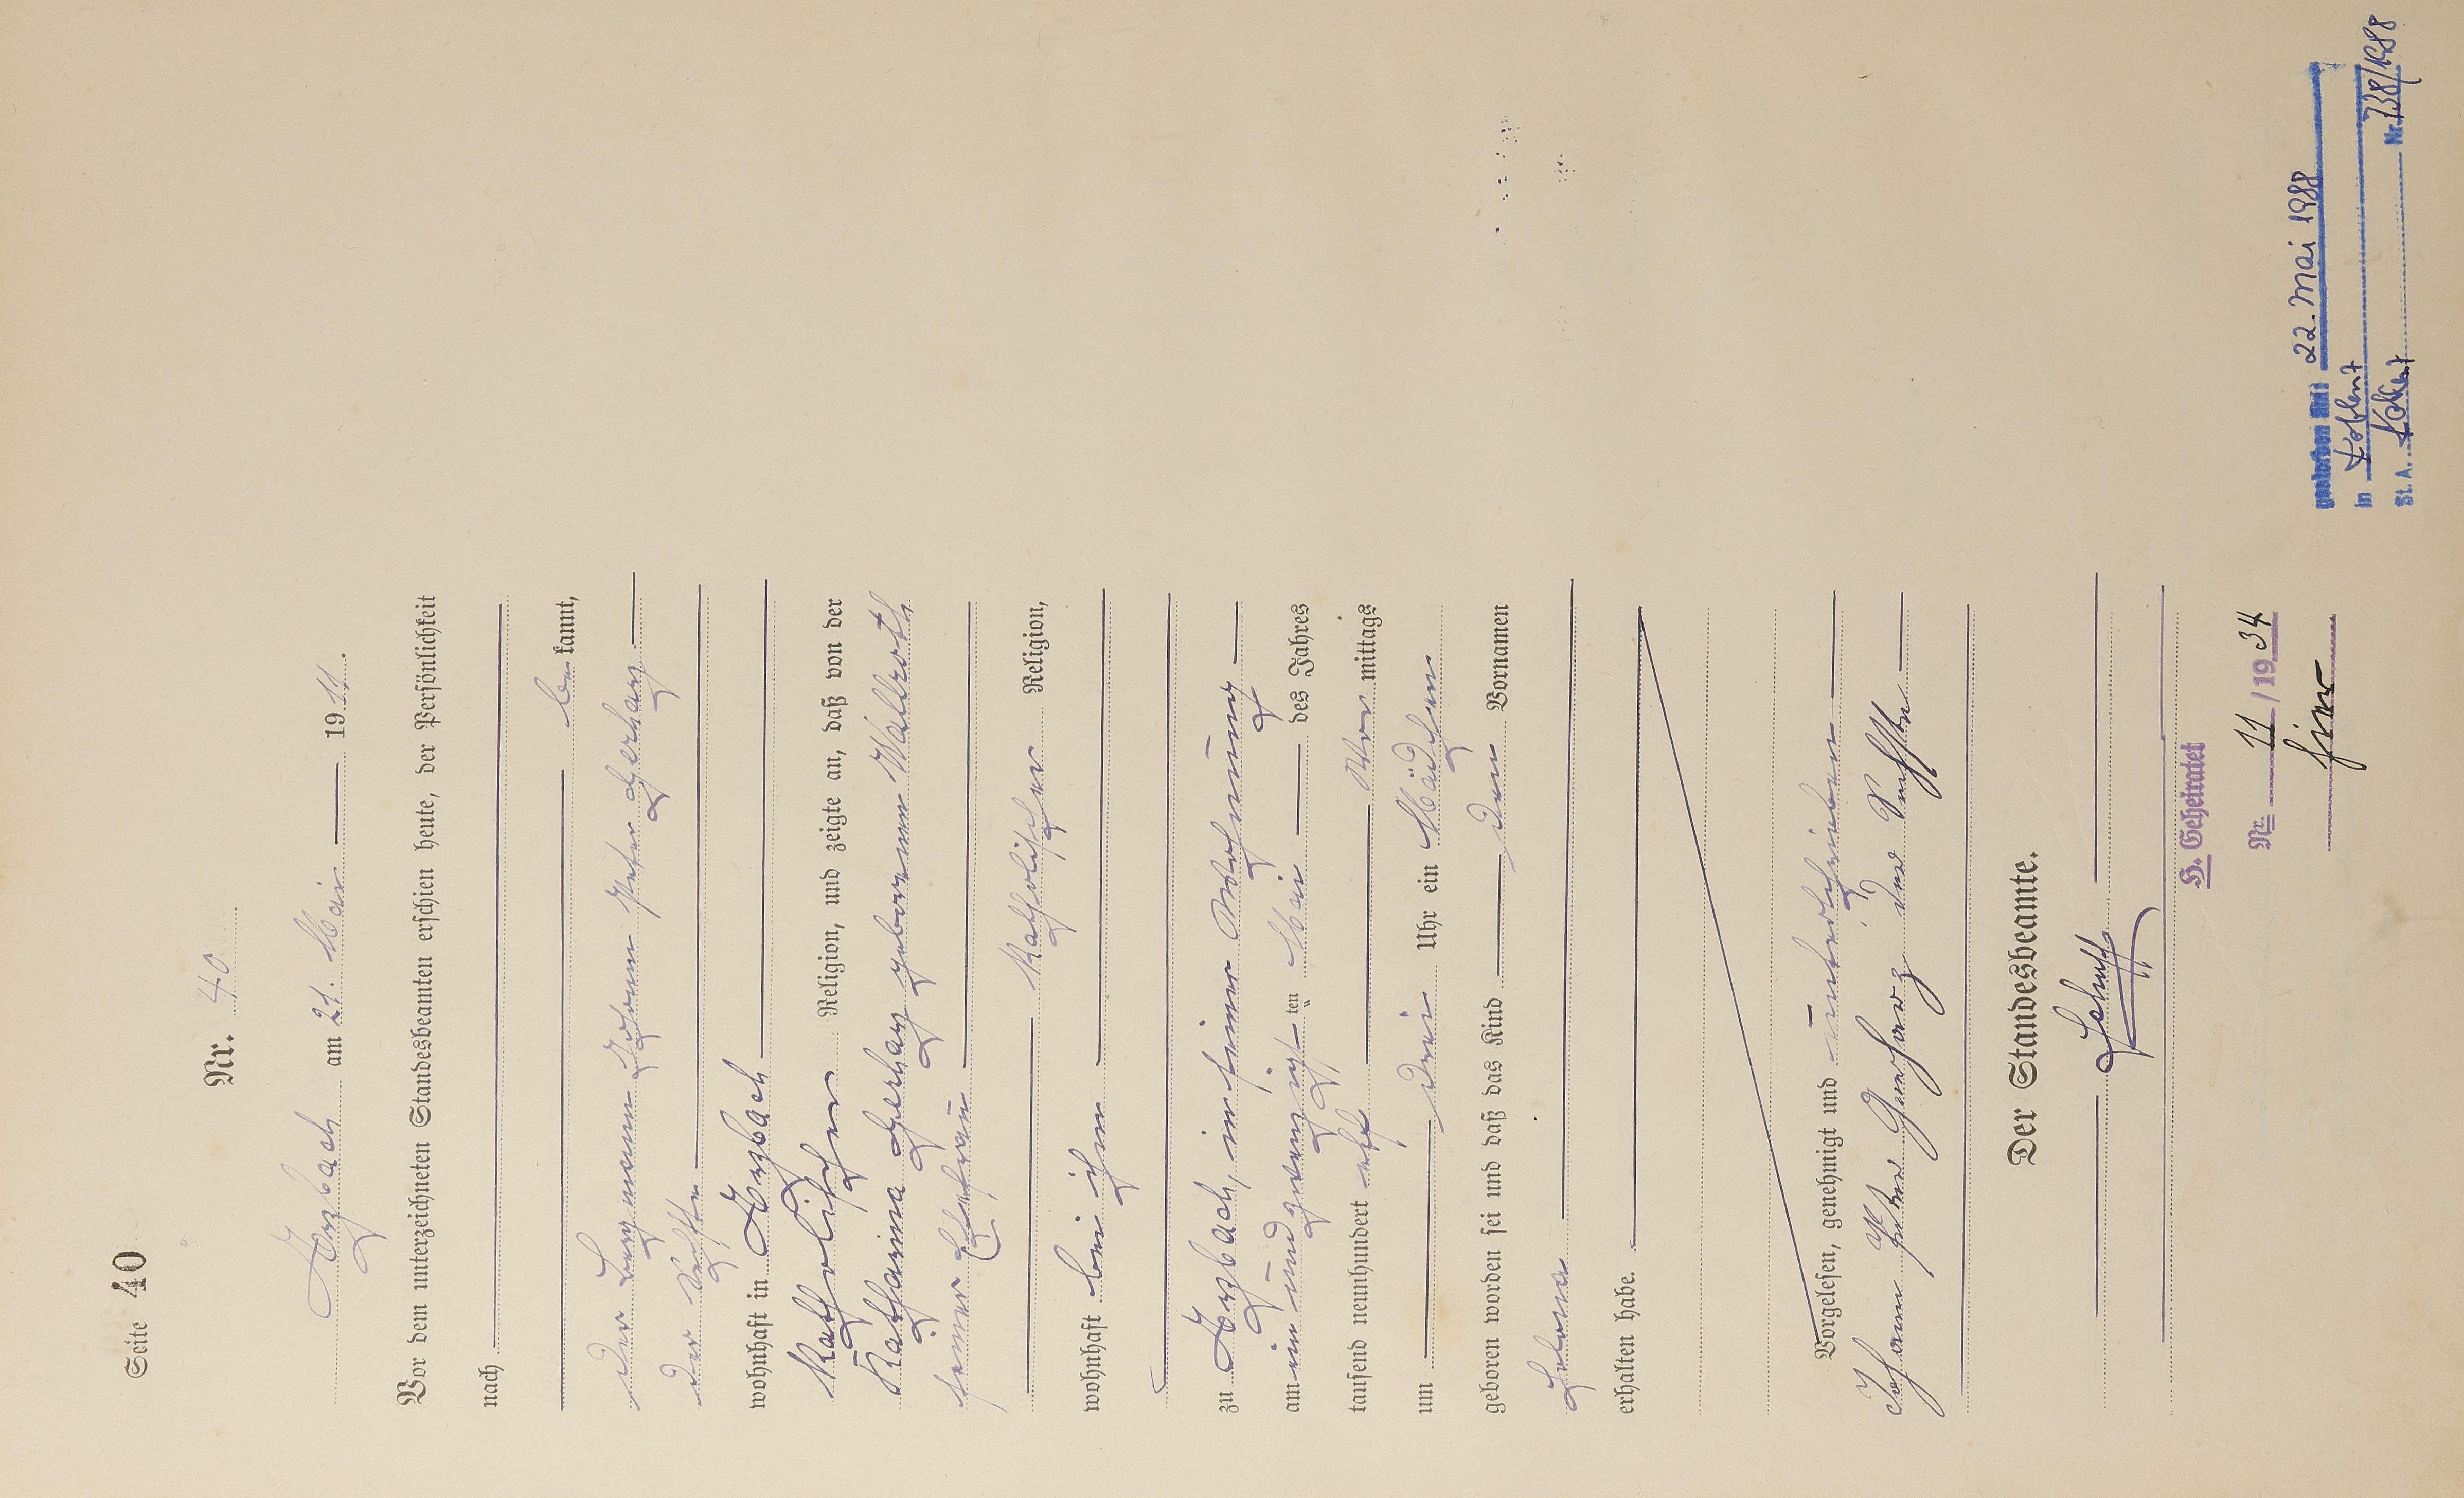 Seite 40
Nr. 40
Horbach am 21. Mai 1911.
Vor dem unterzeichneten Standesbeamten erschien heute, der Persönlichkeit
nach
be kannt,
der Bergmann Johann Peter Gerharz
der
wohnhaft in Horbach
katholischer Religion, und zeigte an, daß von der
Katharina Gerharz geborenen Wallroth
seiner Ehefrau
katholischer Religion,
wohnhaft bei ihm
zu Horbach, in seiner Wohnung
am ein und zwanzigsten Mai des Jahres
tausend neunhundert elf Vor mittags
um drei Uhr ein Mädchen
geboren worden sei und daß das Kind den Vornamen
Helena
erhalten habe.
Vorgelesen, genehmigt und unterschrieben
Johann Peter Gerharz der
Der Standesbeamte.
H. Geheiratet
Nr. 11 / 1934
hier
gestorben am 22. Mai 1988
in Koblenz
St. A. Koblenz Nr. 738/1988